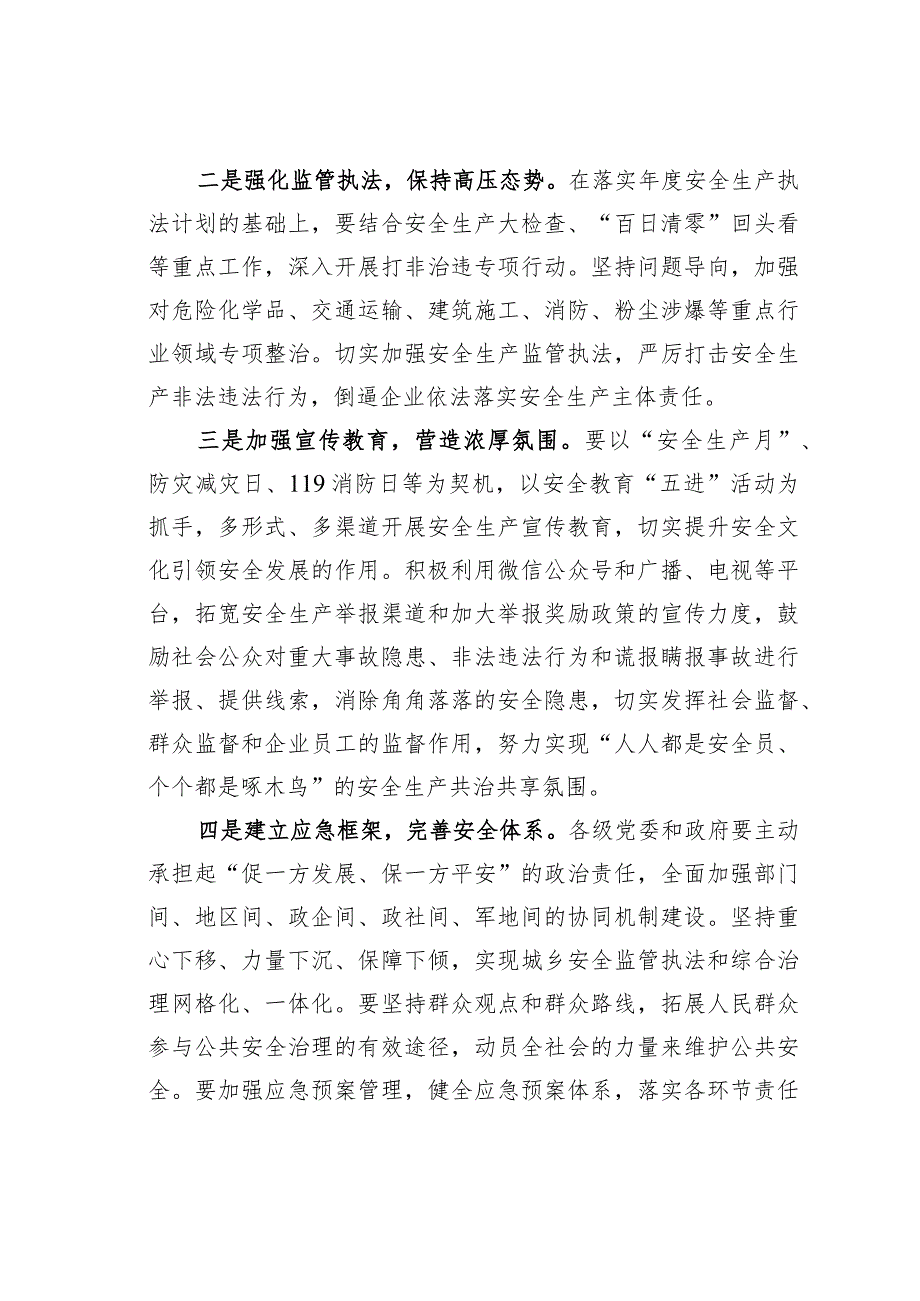 二是强化监管执法，保持高压态势。在落实年度安全生产执
法计划的基础上，要结合安全生产大检查、“百日清零”回头看
等重点工作，深入开展打非治违专项行动。坚持问题导向，加强
对危险化学品、交通运输、建筑施工、消防、粉尘涉爆等重点行
业领域专项整治。切实加强安全生产监管执法，严厉打击安全生
产非法违法行为，倒逼企业依法落实安全生产主体责任。
三是加强宣传教育，营造浓厚氛围。要以“安全生产月”、
防灾减灾日、119 消防日等为契机，以安全教育“五进”活动为
抓手，多形式、多渠道开展安全生产宣传教育，切实提升安全文
化引领安全发展的作用。积极利用微信公众号和广播、电视等平
台，拓宽安全生产举报渠道和加大举报奖励政策的宣传力度，鼓
励社会公众对重大事故隐患、非法违法行为和谎报瞒报事故进行
举报、提供线索，消除角角落落的安全隐患，切实发挥社会监督、
群众监督和企业员工的监督作用，努力实现“人人都是安全员、
个个都是啄木鸟”的安全生产共治共享氛围。
四是建立应急框架，完善安全体系。各级党委和政府要主动
承担起“促一方发展、保一方平安”的政治责任，全面加强部门
间、地区间、政企间、政社间、军地间的协同机制建设。坚持重
心下移、力量下沉、保障下倾，实现城乡安全监管执法和综合治
理网格化、一体化。要坚持群众观点和群众路线，拓展人民群众
参与公共安全治理的有效途径，动员全社会的力量来维护公共安
全。要加强应急预案管理，健全应急预案体系，落实各环节责任